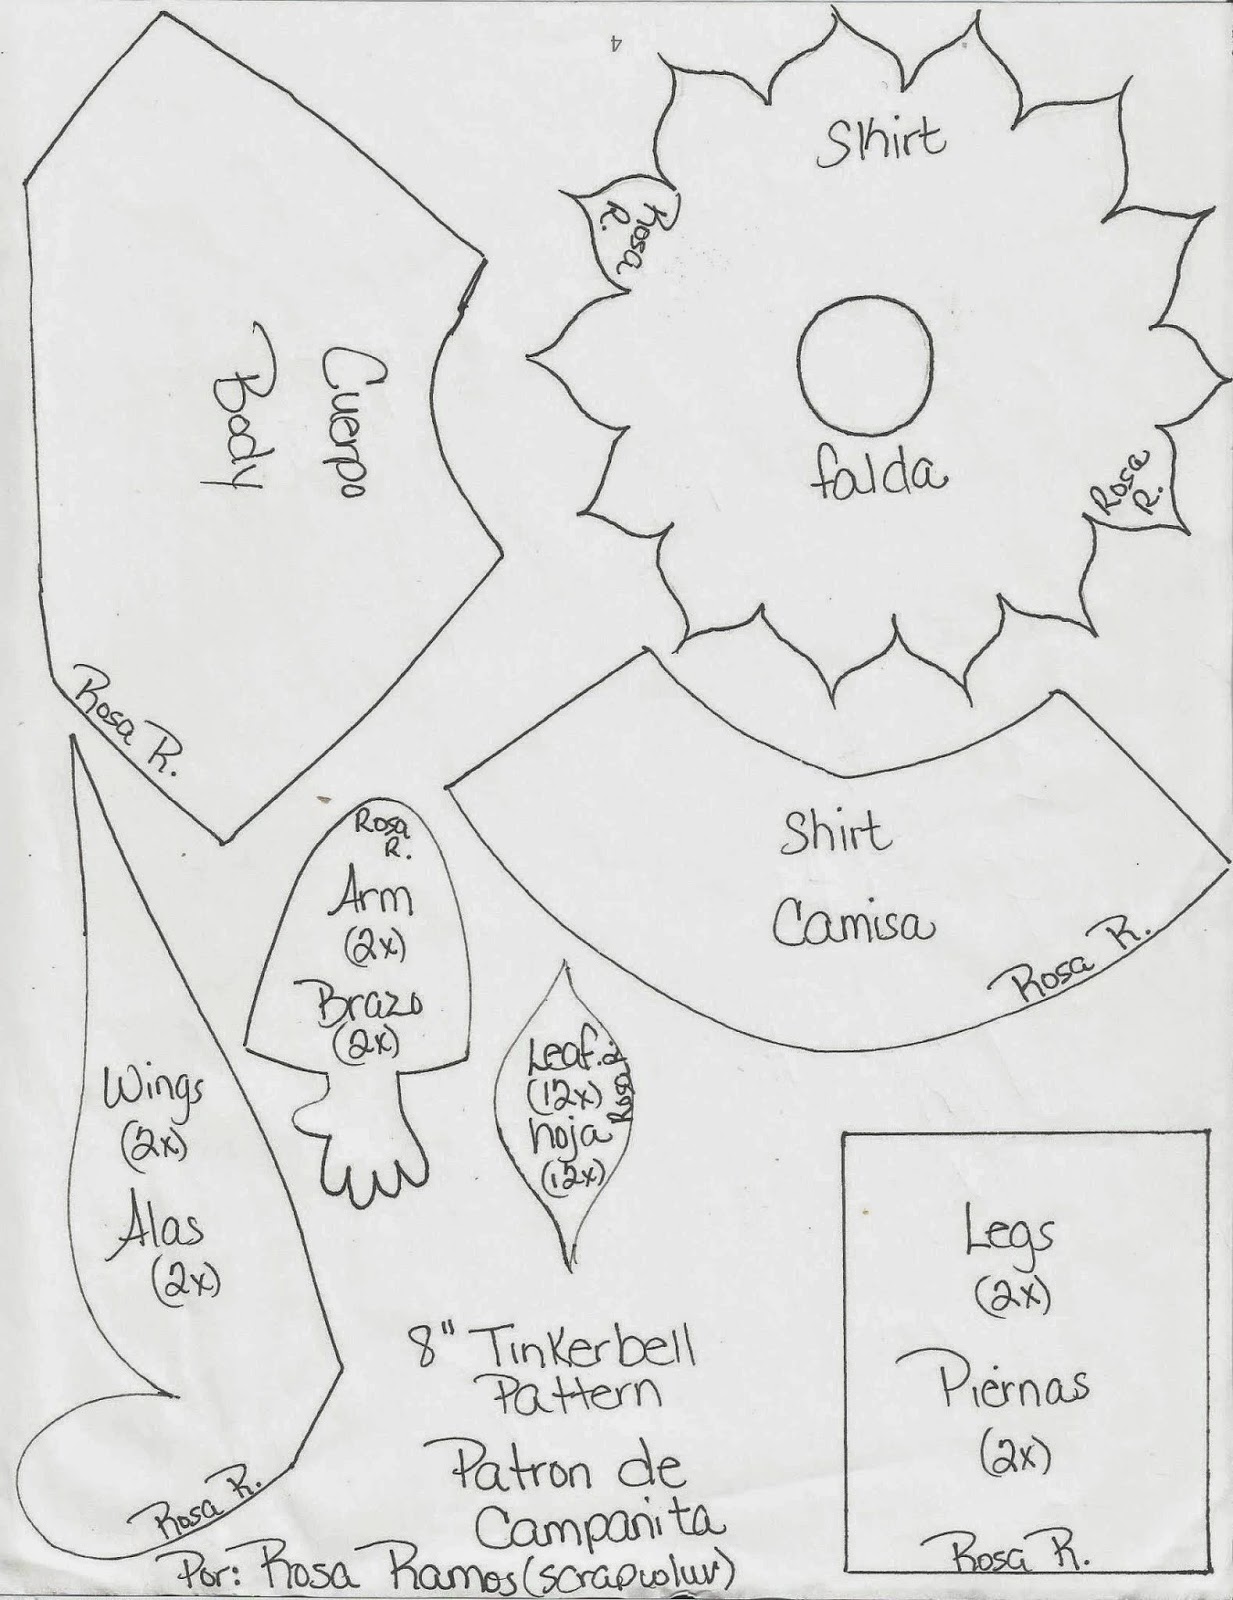 4
Skirt
Rosa
R.
falda
Rosa
R.
Cuerpo
Body
Rosa R.
Shirt
Camisa
Rosa R.
Rosa
R.
Arm
(2x)
Brazo
(2x)
Leaf
(12x)
hoja
(12x)
Rosa R.
Wings
(2x)
Alas
(2x)
Rosa R.
Legs
(2x)
Piernas
(2x)
Rosa R.
8" Tinkerbell
Pattern
Patron de
Campanita
Por: Rosa Ramos (scrapwluv)